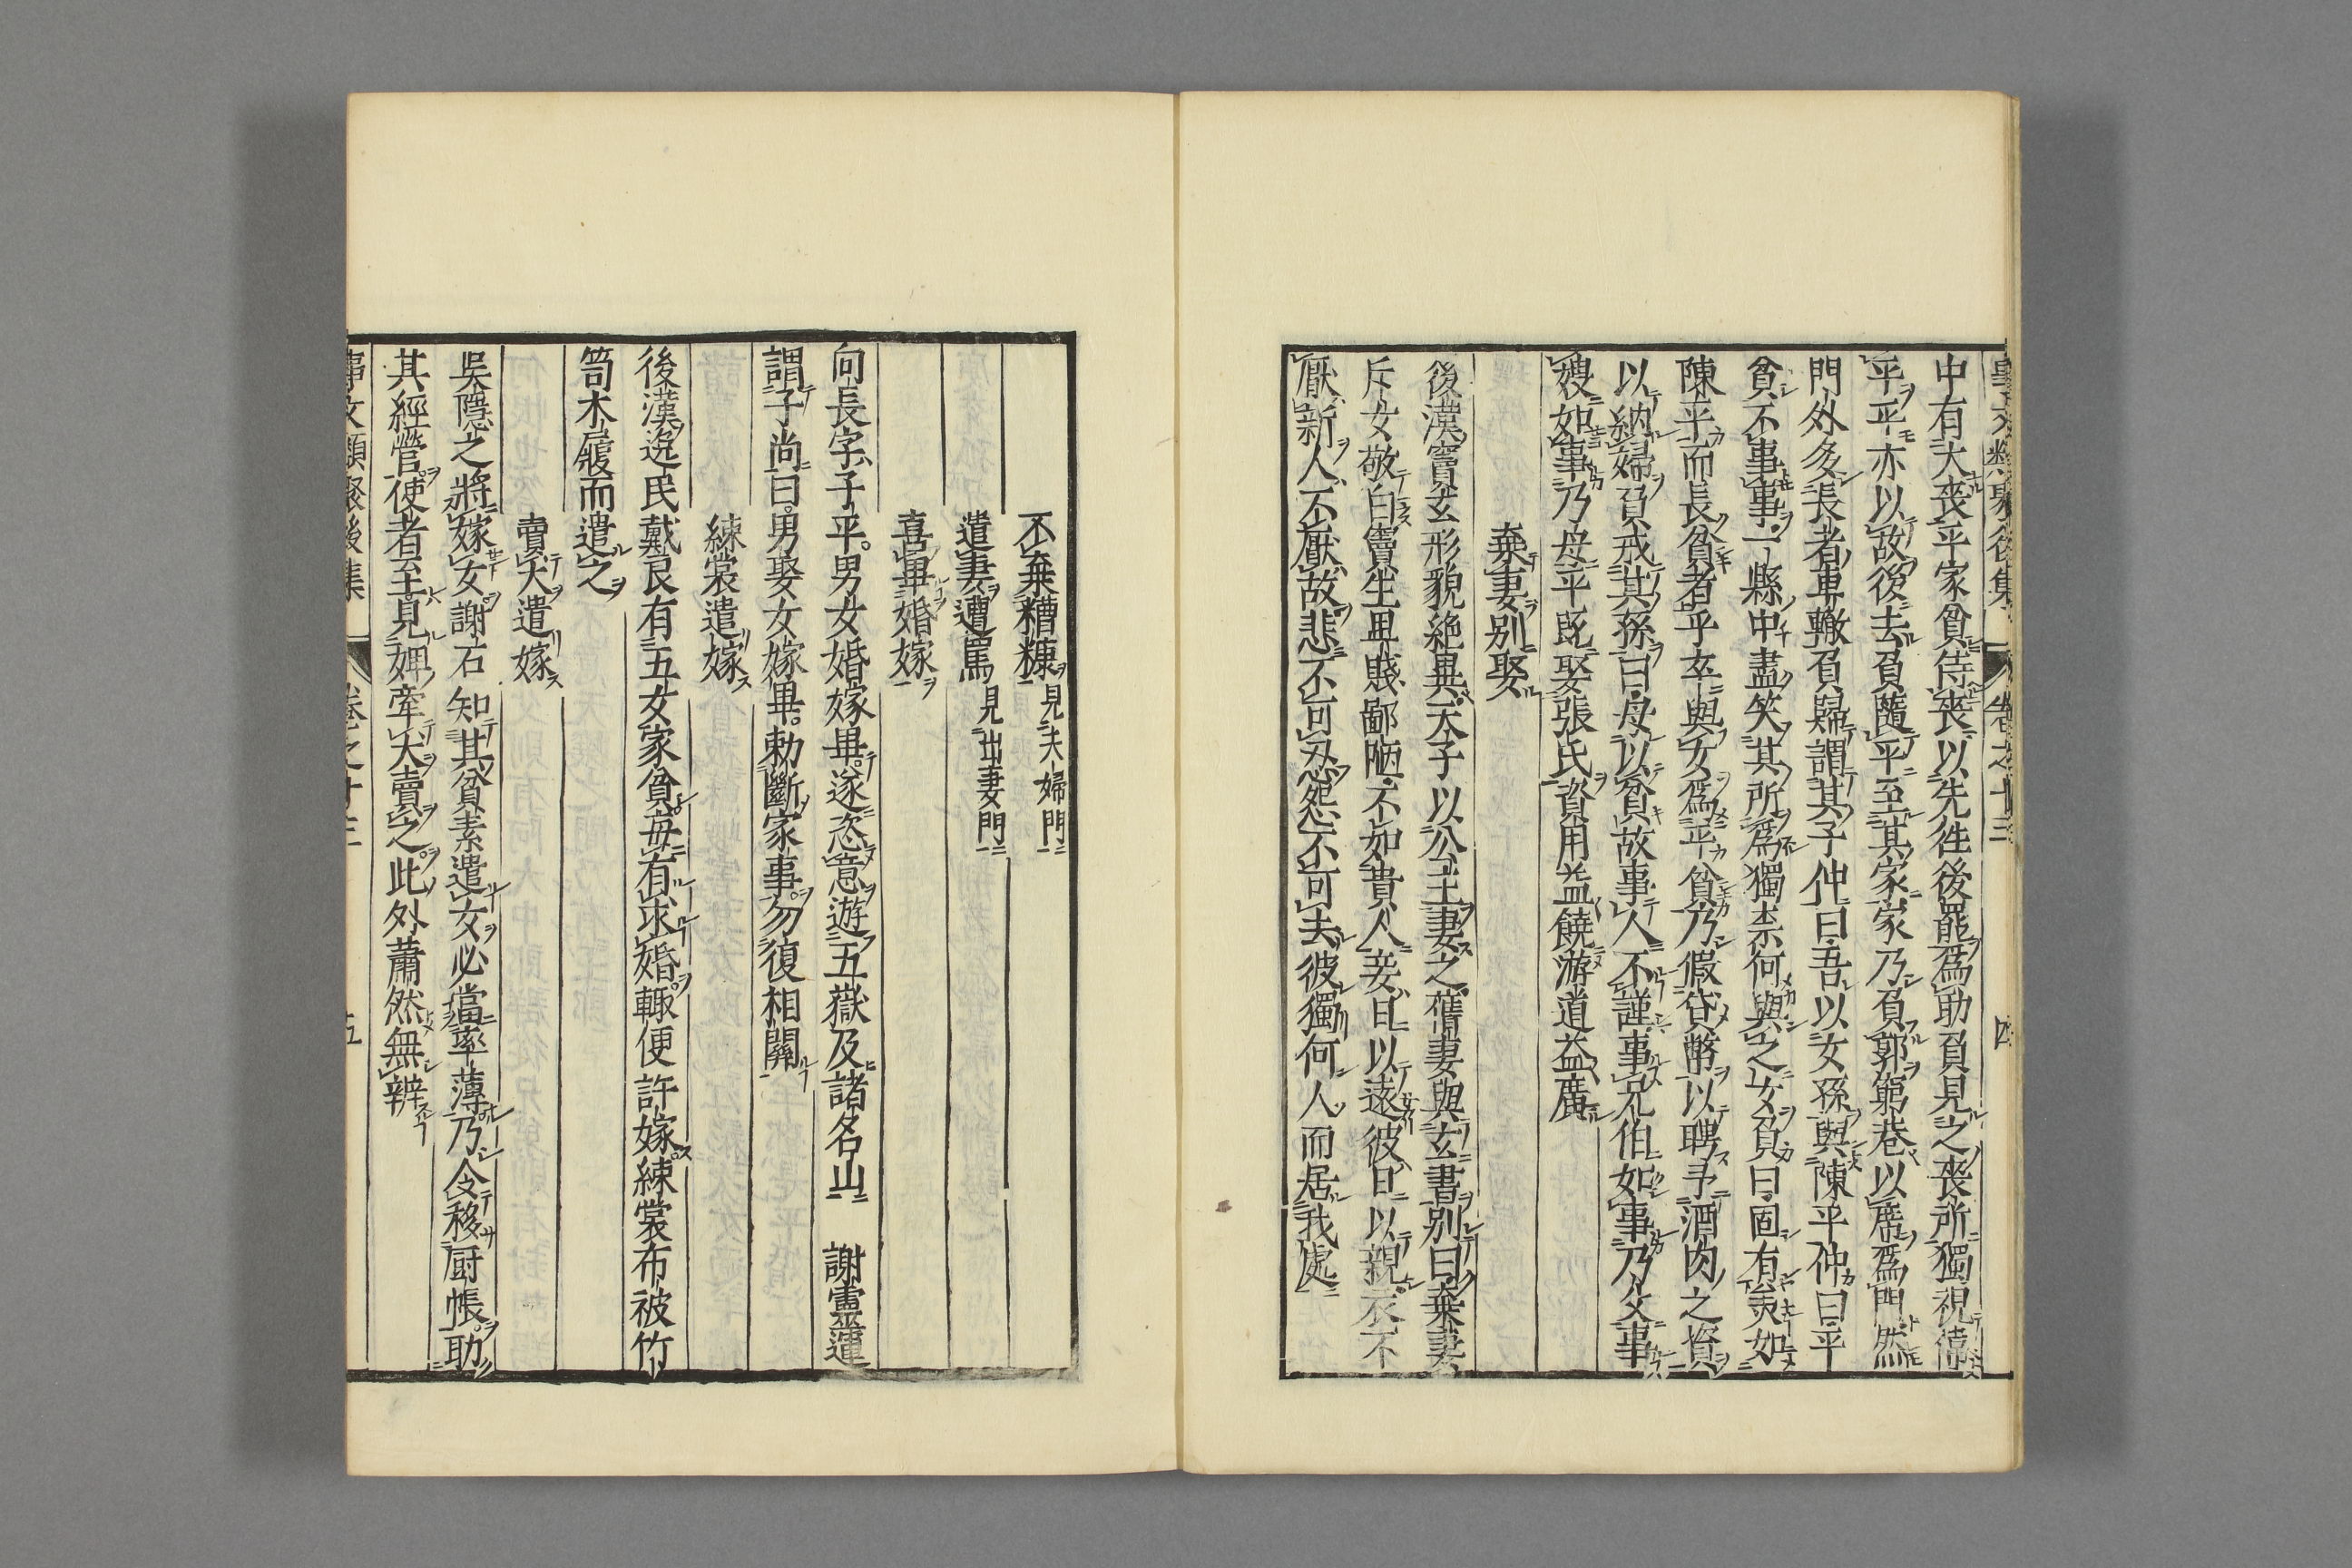 事文類聚後集 卷之十三 四
中有大喪平家貧侍喪以先徃後罷爲助負見之喪所獨視偉
平平亦以故後去負隨平至其家家乃負郭窮巷以席爲門然
門外多長者車轍負歸謂其子仲曰吾以女孫與陳平仲曰平
貧不事事一縣中盡笑其所爲獨柰何與之女負曰固有美如
陳平而長貧者乎卒與女爲平貧乃假貸幣以聘予酒肉之資
以納婦負戒其孫曰毋以貧故事人不謹事兄伯如事乃父事
嫂如事乃母平既娶張氏資用益饒游道益廣
棄妻別娶
後漢竇玄形貌絶異天子以公主妻之舊妻與玄書別曰棄妻
斥女敬白竇生卑賤鄙陋不如貴人妾日以遠彼日以親衣不
厭新人不厭故悲不可忍怨不可去彼獨何人而居我處
不棄糟糠 見夫婦門
遣妻遭罵 見出妻門
喜畢婚嫁
向長字子平男女婚嫁畢遂恣意遊五嶽及諸名山 謝靈運
謂子尚曰男娶女嫁畢勅斷家事勿復相關
練裳遣嫁
後漢逸民戴良有五女家貧每有求婚輙便許嫁練裳布被竹
笥木屐而遣之
賣犬遣嫁
吳隱之將嫁女謝石知其貧素遣女必當率薄乃令移厨帳助
其經營使者至見婢牽犬賣之此外蕭然無辨
事文類聚後集 卷之十三 五